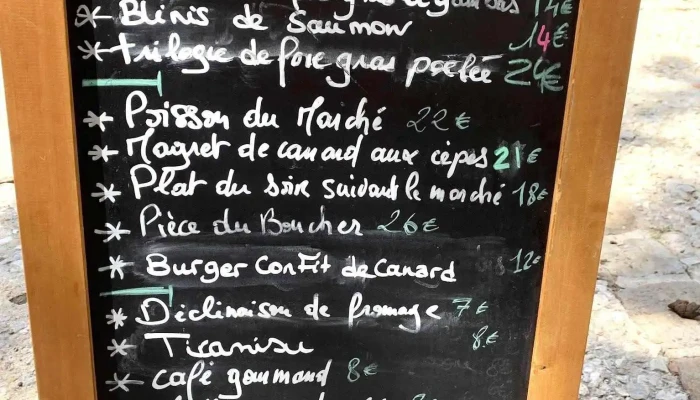 14€
* Blinis de Saumon 14€
* Trilogie de foie gras poelée 24€
* Poisson du Marché 22€
* Magret de canard aux cèpes 21€
* Plat du soir suivant le marché 18€
* Pièce du Boucher 26€
* Burger Confit de Canard 12€
* Déclinaison de fromage 7€
* Tiramisu 8€
* café gourmand 8€